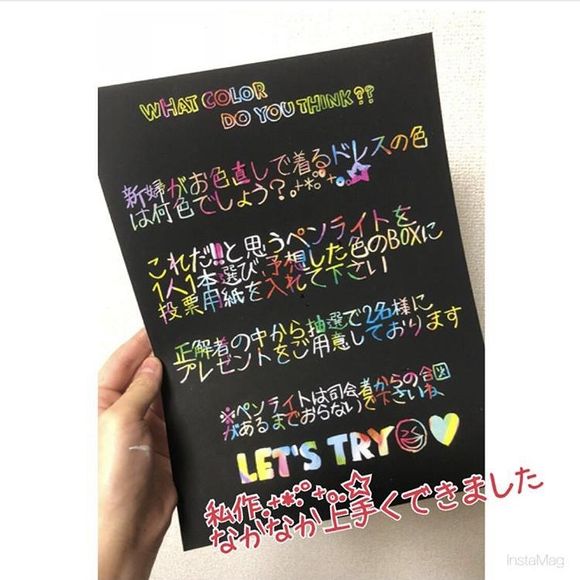 WHAT COLOR
DO YOU THINK??
新婦がお色直しで着るドレスの色
は何色でしょう？｡+*°+｡☆
これだ!!と思うペンライトを
1人1本選び、予想した色のBOXに
投票用紙を入れて下さい
正解者の中から抽選で2名様に
プレゼントをご用意しております
※ペンライトは司会者からの合図
があるまでおらないで下さいね
LET'S TRY
私作｡+*°+｡☆
なかなか上手くできました
InstaMag